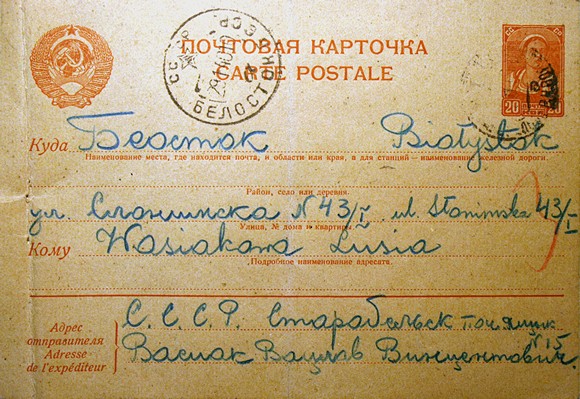 ПОЧТОВАЯ КАРТОЧКА
CARTE POSTALE
СССР
БЕЛОСТОК
20 20
Куда Беосток Białystok
Наименование места, где находится почта, и области или края, а для станций — наименование железной дороги
Район, село или деревня.
ул. Слонимска N 43/I ul. Słonimska 43/I
Улица, № дома и квартиры.
Кому Wasiakowa Lusia
Подробное наименование адресата.
С.С.С.Р. Старабельск поч. ящик
N 15
Адрес отправителя
Adresse de l'expéditeur
Васиак Вацлав Винцентович.